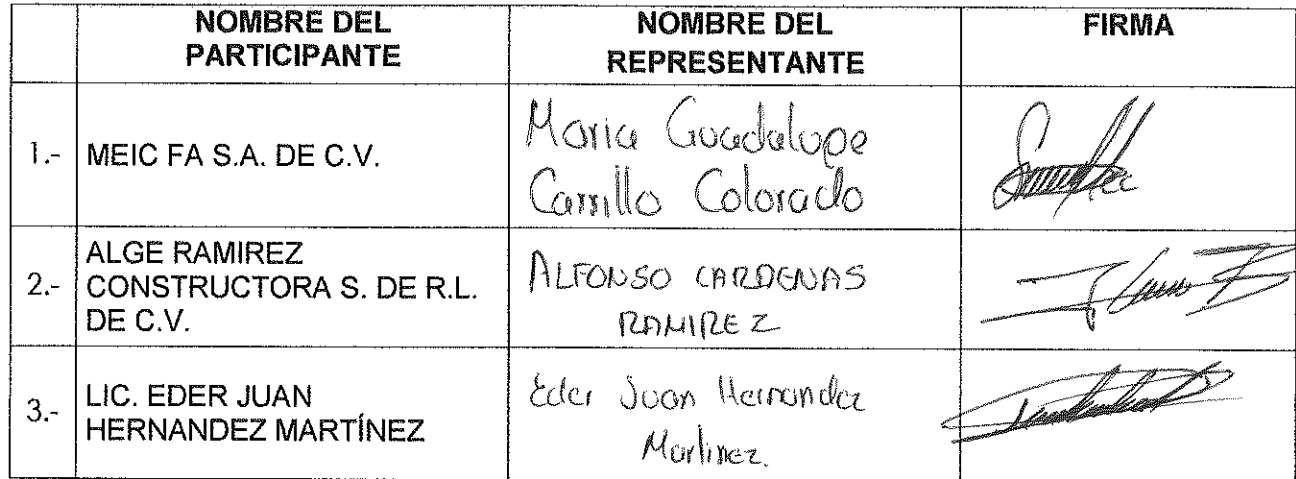 NOMBRE DEL
PARTICIPANTE
NOMBRE DEL
REPRESENTANTE
FIRMA
1.-
MEIC FA S.A. DE C.V.
Maria Guadalupe
Carrillo Colorado
2.-
ALGE RAMIREZ
CONSTRUCTORA S. DE R.L.
DE C.V.
ALFONSO CARDENAS
RAMIREZ
3.-
LIC. EDER JUAN
HERNANDEZ MARTÍNEZ
Eder Juan Hernandez
Martinez.